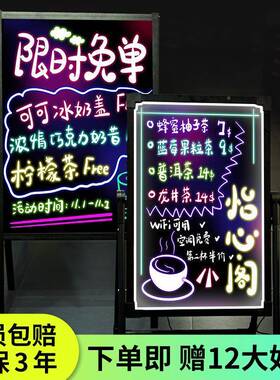 限时免单
可可冰奶盖 Free
浓情巧克力奶昔
柠檬茶Free
活动时间: 11.1-11.2
蜂蜜柚子茶 7$
蓝莓果粒茶 9$
普洱茶 14$
龙井茶 14$
怡心阁
WiFi可用
空调免费
第二杯半价
损包赔
保3年
下单即 赠12大好